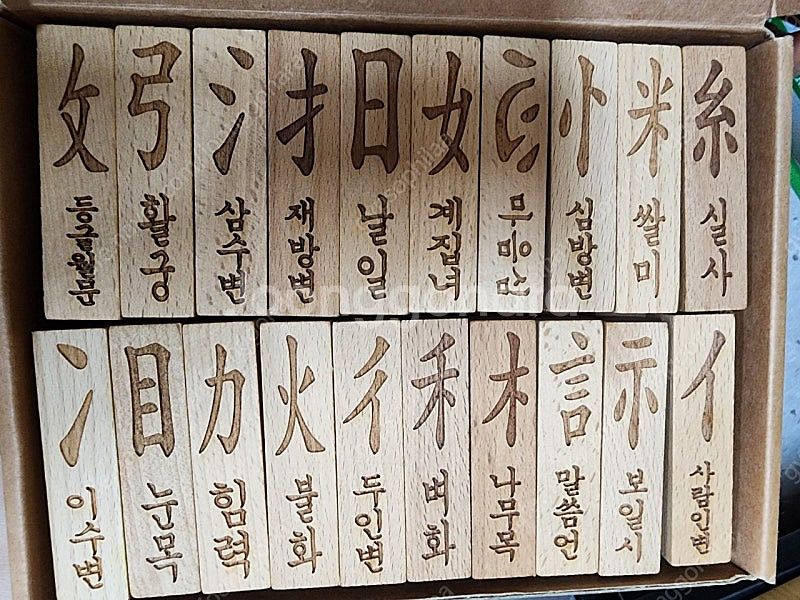 攵 등글월문
弓 활궁
氵 삼수변
扌 재방변
日 날일
女 계집녀
忄 심방변
米 쌀미
糸 실사
冫 이수변
目 눈목
力 힘력
火 불화
彳 두인변
禾 벼화
木 나무목
言 말씀언
示 보일시
亻 사람인변